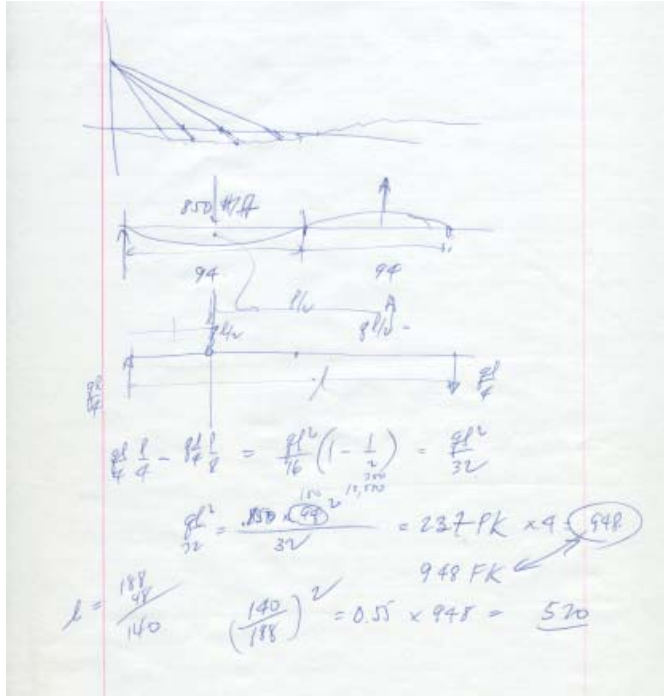 850 #/ft
94 94
l/2
ql/2 ql/2
l
ql/4 ql/4
ql/4 l/4 - ql/4 l/8 = ql²/16 (1 - 1/2) = ql²/32
ql²/32 = .850 x (94)²/32 = 237 FK x 4 = 948
948 FK
l = 188 48 / 140
(140/188)² = 0.55 x 948 = 520